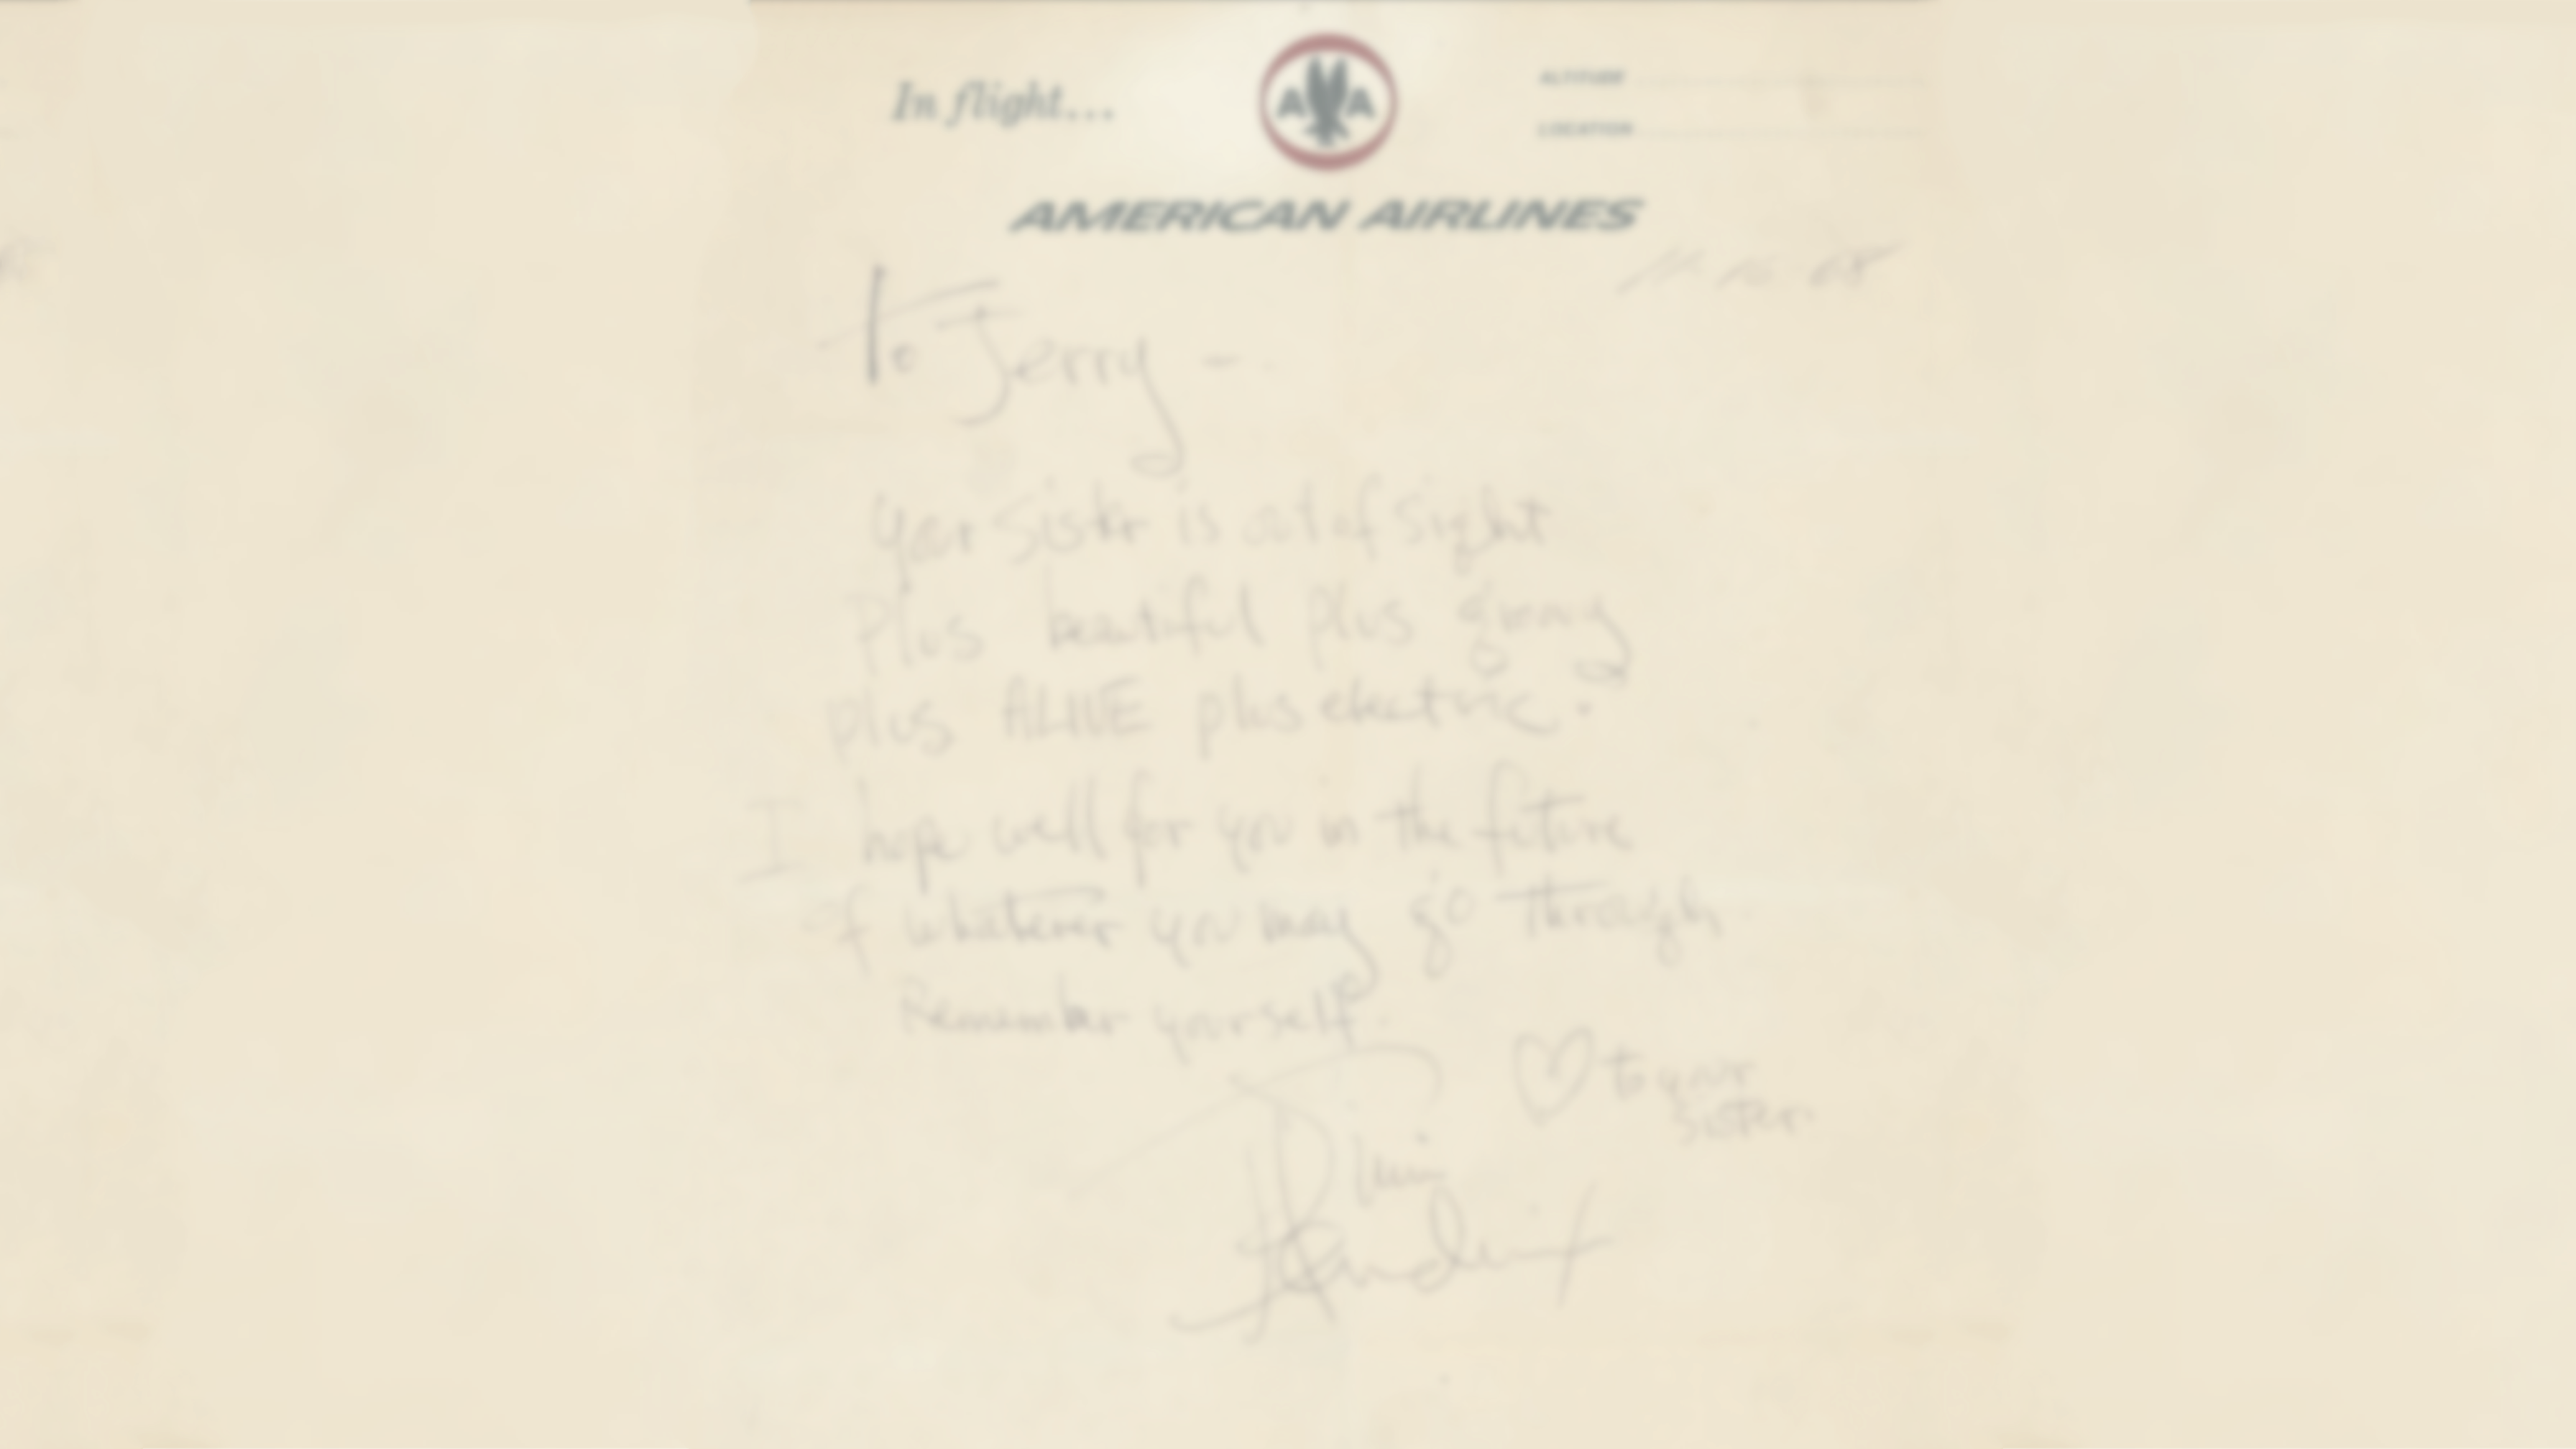 In flight...
A A
ALTITUDE
LOCATION
AMERICAN AIRLINES
68
To Jerry -
your Sister is out of Sight
Plus beautiful plus groovy
plus ALIVE plus electric.
I hope well for you in the future
of whatever you may go through
Remember yourself.
♡ to your
sister
Jimi
Hendrix